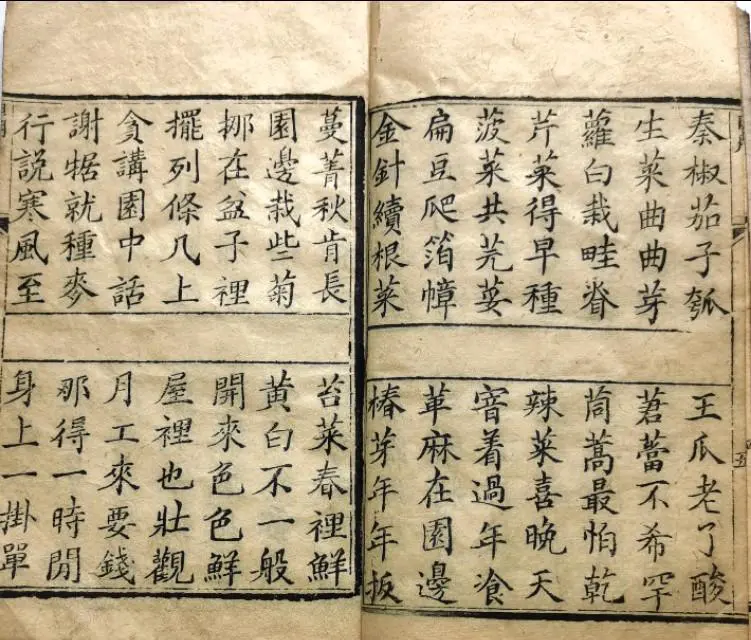 秦椒茄子瓠
王瓜老了酸
生菜曲曲芽
莙蕾不希罕
蘿白栽畦脊
茼蒿最怕乾
芹菜得早種
辣菜喜晚天
菠菜共芫荽
窨着過年飡
扁豆爬箔幛
萆麻在園邊
金針續根菜
椿芽年年扳
蔓菁秋肯長
苔菜春裡鮮
園邊栽些菊
黄白不一般
挪在盆子裡
開來色色鮮
擺列條几上
屋裡也壯觀
貪講園中話
月工來要錢
謝犋就種麥
那得一時閒
行説寒風至
身上一掛單